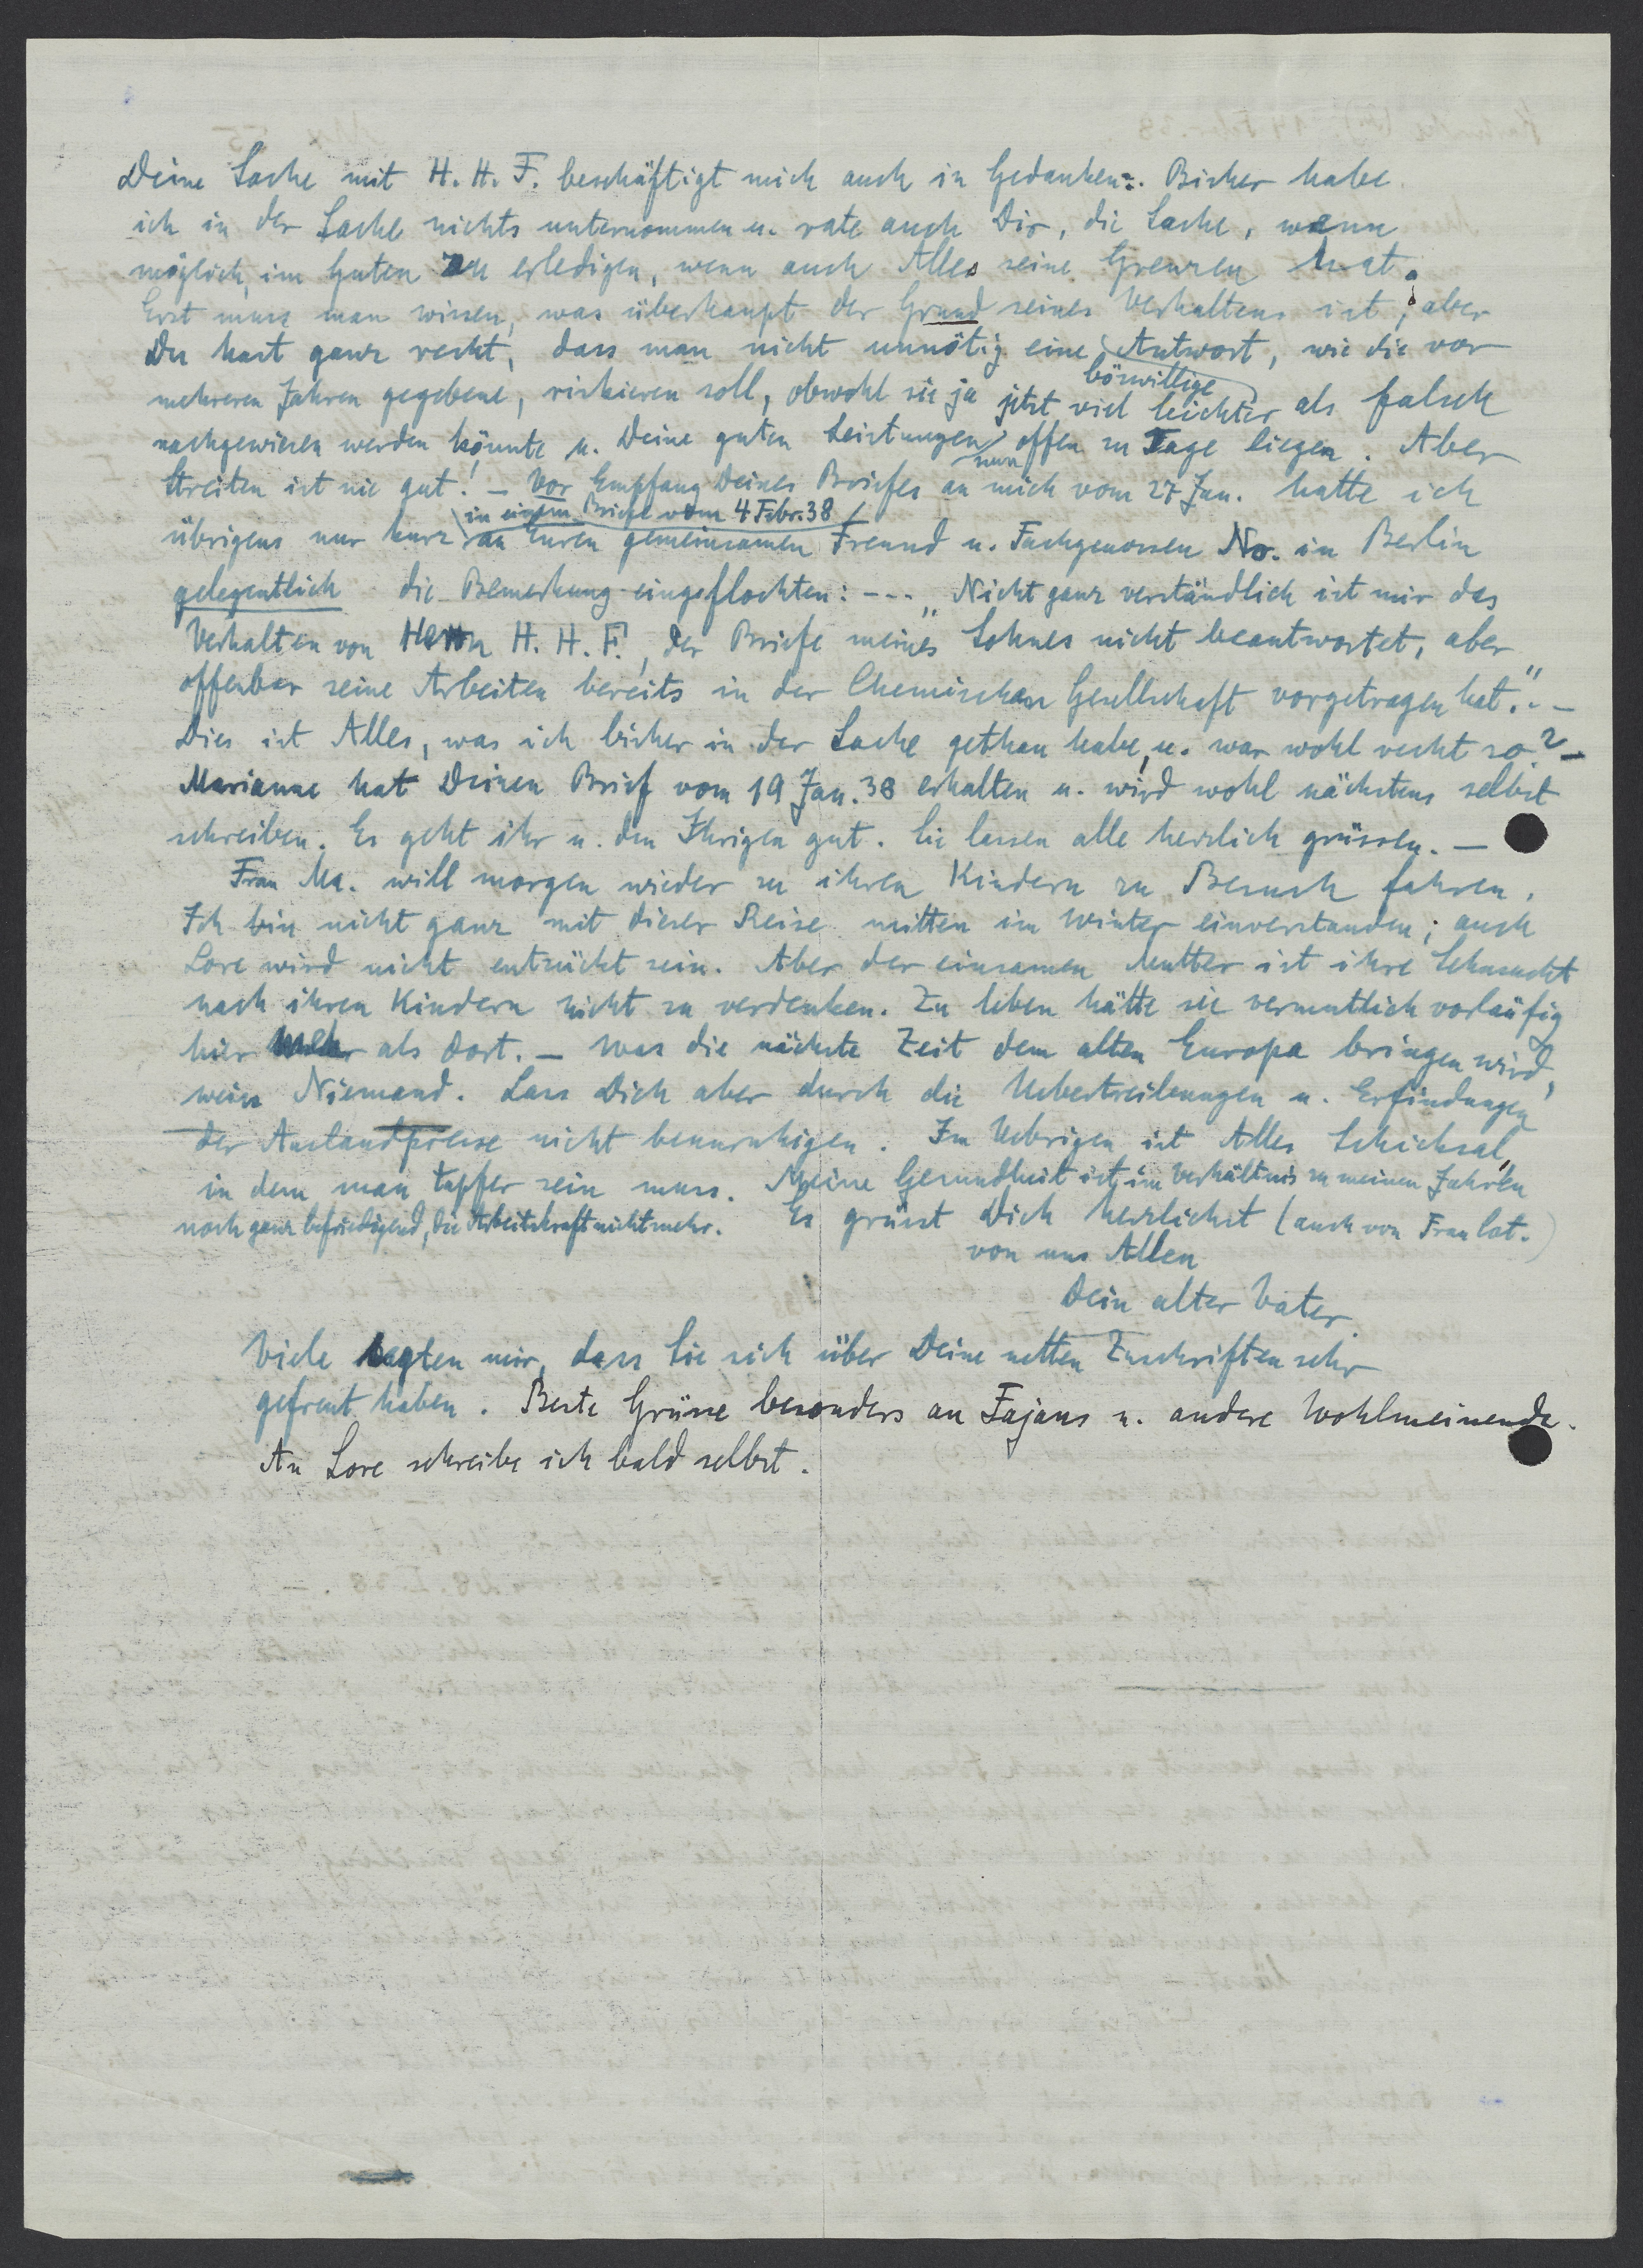 Deine Sache mit H. H. F. beschäftigt mich auch in Gedanken. Bisher habe
ich in der Sache nichts unternommen u. rate auch Dir, die Sache, wenn
möglich, im Guten zu erledigen, wenn auch Alles seine Grenzen hat.
Erst muss man wissen, was überhaupt der Grund seines Verhaltens ist; aber
Du hast ganz recht, dass man nicht unnötig eine Antwort, wie die vor
böswillige
mehreren Jahren gegebene, riskieren soll, obwohl sie ja jetzt viel leichter als falsch
nachgewiesen werden könnte u. Deine guten Leistungen nun offen zu Tage liegen. Aber
Streiten ist nie gut! – Vor Empfang Deines Briefes an mich vom 27 Jan. hatte ich
in einem Briefe vom 4 Febr. 38
übrigens nur kurz an Euren gemeinsamen Freund u. Fachgenossen No. in Berlin
gelegentlich die Bemerkung eingeflochten: --- „Nicht ganz verständlich ist mir das
Verhalten von Herrn H. H. F., der Briefe meines Sohnes nicht beantwortet, aber
offenbar seine Arbeiten bereits in der Chemischen Gesellschaft vorgetragen hat." –
Dies ist Alles, was ich bisher in der Sache gethan habe, u. war wohl recht so? –
Marianne hat Deinen Brief vom 19 Jan. 38 erhalten u. wird wohl nächstens selbst
schreiben. Es geht ihr u. den Ihrigen gut. Sie lassen alle herzlich grüssen. –
Frau Ma. will morgen wieder zu ihren Kindern zu Besuch fahren.
Ich bin nicht ganz mit dieser Reise mitten im Winter einverstanden; auch
Lore wird nicht entzückt sein. Aber der einsamen Mutter ist ihre Sehnsucht
nach ihren Kindern nicht zu verdenken. Zu leben hätte sie vermutlich vorläufig
hier mehr als dort. – Was die nächste Zeit dem alten Europa bringen wird,
weiss Niemand. Lass Dich aber durch die Uebertreibungen u. Erfindungen
der Auslandpresse nicht beunruhigen. Im Uebrigen ist Alles Schicksal,
in dem man tapfer sein muss. Meine Gesundheit ist im Verhältnis zu meinen Jahren
noch ganz befriedigend, die Arbeitskraft nicht mehr. Es grüsst Dich herzlichst (auch von Frau Cat.)
von uns Allen
Dein alter Vater.
Viele sagten mir, dass Sie sich über Deine netten Zuschriften sehr
gefreut haben. Beste Grüsse besonders an Fajans u. andere Wohlmeinende.
An Lore schreibe ich bald selbst.